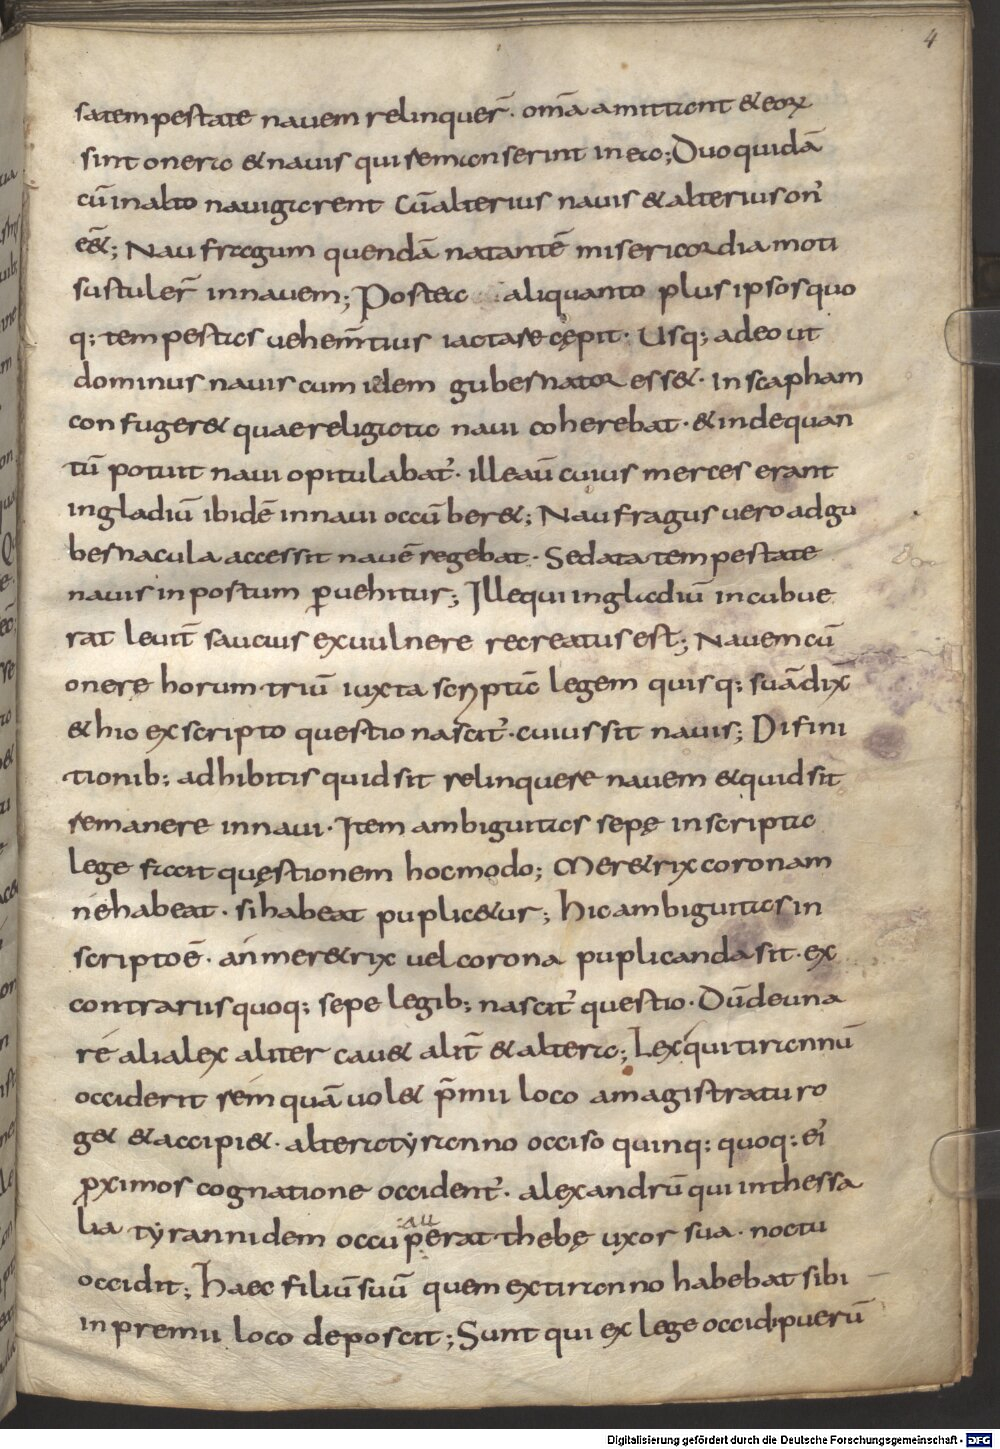 4
satempestate nauem relinquer̄. om̄a amittant & eoꝝ
sint onera & nauis qui remanserint in ea; Duo quidā
cū in alto nauigarent cū alterius nauis & alterius on̓
eēt; Naufragum quendā natantē misericordia moti
sustuler̄ in nauem; Postea aliquanto plus ipsos quo
q; tempestas uehem̄tius iactare cępit. Usq; adeo ut
dominus nauis cum idem gubernator ess&. in scapham
confuger& quae religata naui coherebat. & inde quan
tū potuit naui opitulabat̓. ille aū cuius merces erant
in gladiū ibidē in naui occūber&; Naufragus uero ad gu
bernacula accessit nauē regebat. Sedata tempestate
nauis in postum ꝑuehitur; Ille qui in gladiū incubue
rat leuit̄ saucius ex uulnere recreatus est; Nauem cū
onere horum triū iuxta scrptā legem quisq; suā dix̄
& hic ex scripto questio nascit̓. cuius sit nauis; Difini
tionib; adhibitis quid sit relinquere nauem & quid sit
remanere in naui. Item ambiguitas sepę in scripta
lege facit quęstionem hocmodo; Mer&rix coronam
ne habeat. si habeat puplic&ur; hic ambiguitas in
scripto ē. an mer&rix uel corona puplicanda sit. ex
contrariis quoq; sepe legib; nascit̓ questio. Dū de una
re alia lex aliter cau& alit̄ & altera; Lex qui tirannū
occiderit rem quā uol& p̄mii loco a magistratu ro
g& & accipi&. altera tyranno occiso quinq; quoq; ei̓
ꝓximos cognatione occident̓. alexandrū qui in thessa
lia tyrannidem occuperat thebę uxor sua. noctu
occidit; haec filiū suū quem ex tiranno habebat sibi
in premii loco deposcit; Sunt qui ex lege occidi puerū
Digitalisierung gefördert durch die Deutsche Forschungsgemeinschaft - DFG